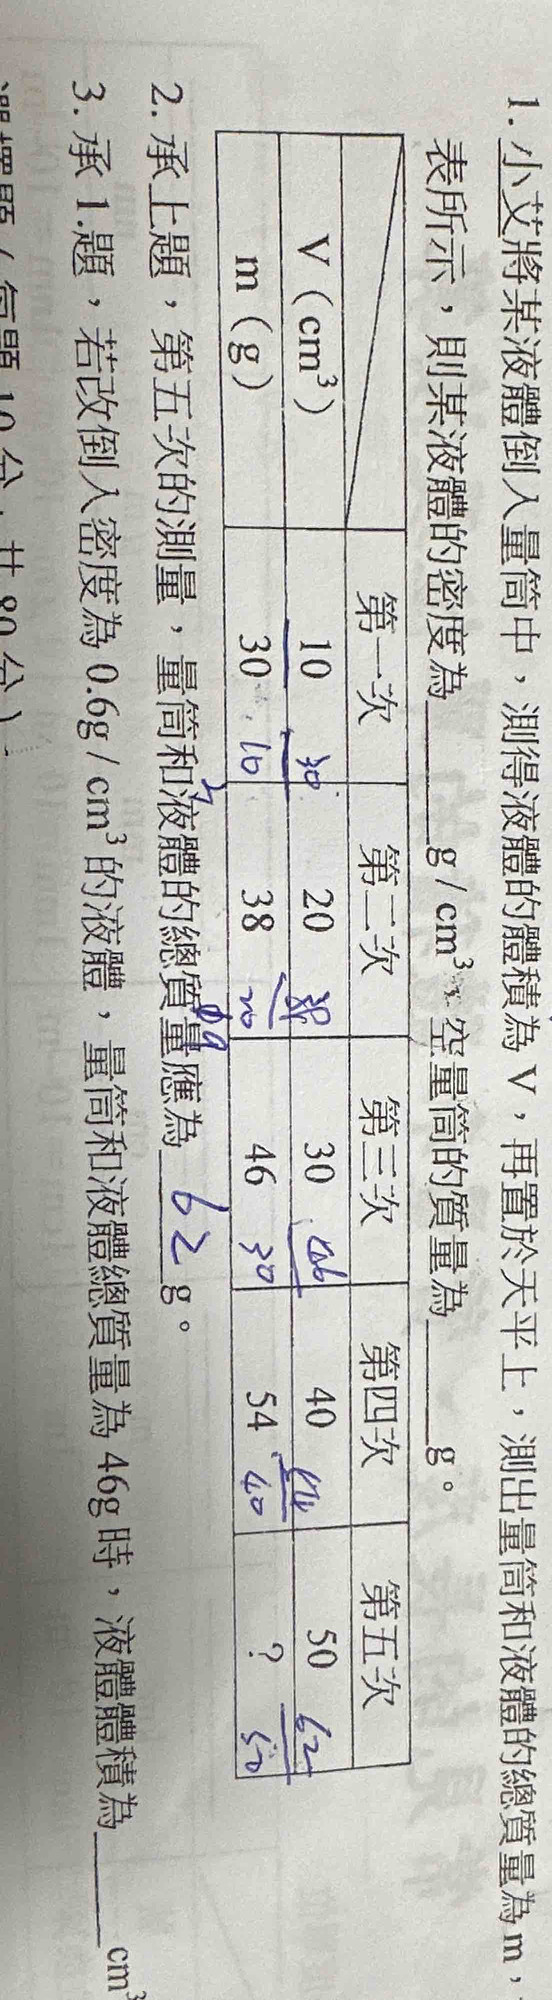 1. 小艾將某液體倒入量筒中，測得液體的體積為 V，再置於天平上，測出量筒和液體的總質量為 m，
表所示，則某液體的密度為____g / cm³；空量筒的質量為____g。
第一次 第二次 第三次 第四次 第五次
V（cm³） 10 20 30 40 50
30 38 46 54 62
m（g） 30 38 46 54 ？
10 20 30 40 50
2. 承上題，第五次的測量，量筒和液體的總質量應為 62 g。
3. 承 1.題，若改倒入密度為 0.6g / cm³ 的液體，量筒和液體總質量為 46g 時，液體體積為____cm³
選擇題（每題 10 分，共 80 分）